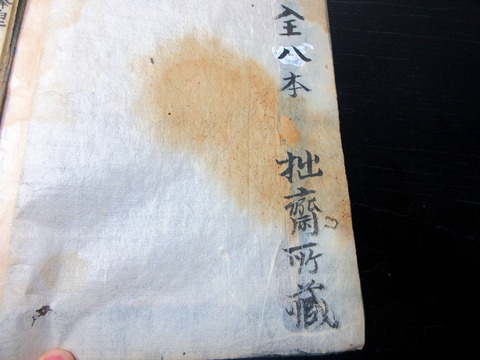 全八本
拙齋所藏